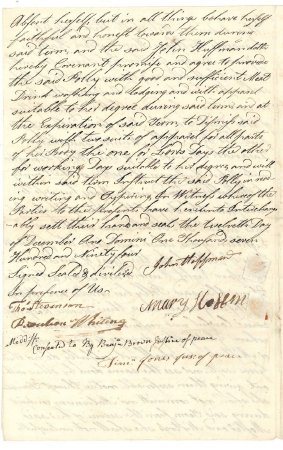 Absent herself but in all things behave herself
faithful and honest towards them during
said term, and the said John Huffman doth
hereby Covenant promise and agree to provide
the said Polly with good and sufficient Meat
Drink washing and lodging and with apparel
suitable to her degree during said term and at
the Expiration of said Term, to Dismiss said
Polly with two suits of apparel for all parts
of her Body the one for Lords Days the other
for working Days suitable to her degree, and will
within said Term Instruct the said Polly in read
ing writing and Cyphering In Witness whereof the
Parties to these presents have Interchang
ably sett their hand and seals the Twelvth Day
of December Anno Domini One Thousand seven
Hundred and Ninety four
Signed Sealed & deliver'd
In presence of Us
John Hoffman
Thos Stevenson
Mary
Whiting
Consented to By Benjn Brown Justice of peace
Jones Just of peace